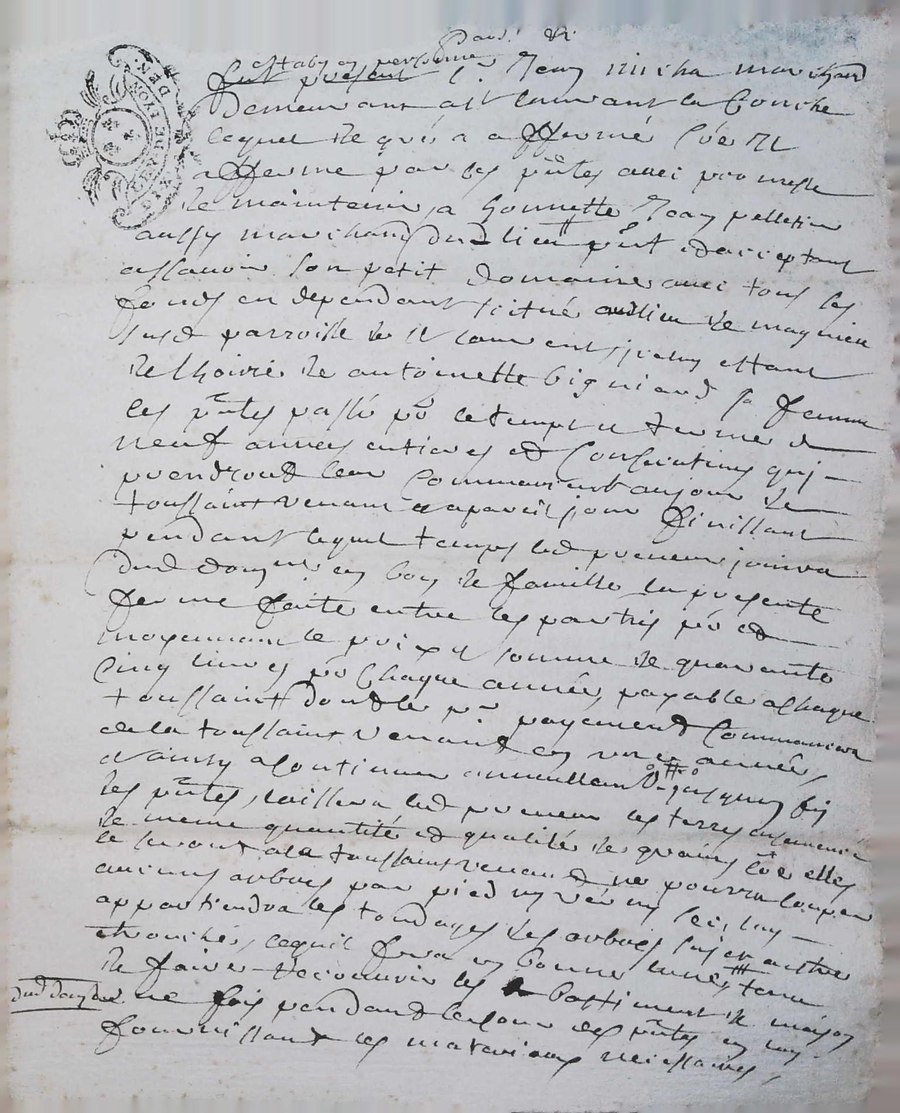 estably en personne
fut présent sr Jean micha marchand
demeurant a st laurant la Conche
lequel de gré a affermé Comme
afferme par les pntes avec promesse
de maintenir a honneste Jean pelletin
aussy marchand dud lieu pnt et acceptant
assavoir son petit domaine avec tous les
fonds en dependant scitué au lieu de magnieu
susd parroisse de st laurent, jceluy estant
de lhoirie de antoinette bigniaud sa femme
les pntes passé po le temps et terme de
neuf annees entieres et Consecutives quj
prendront leur Commencement aujour de
toussaint venant et apareil jour finissant
pendant lequel temps led preneur jouira
dud domne en bon pe de famille, la presente
ferme faite entre les partis po et
moyenant le prix et somme de quarante
cinq livres po Chaque année, payable a chaque
toussaint dont le pr payement Commancera
a la toussaint venant en une année,
et ainsy a continuer annuellement jusques en fin
des pntes, laissera led preneur les terres ensemencé
de meme quantité et qualité de grains Comme elles
le seront a la toussaint venant ne pourra Couper
aucuns arbres par pied ny
appartiendra les tondages des arbres sujet a estre
lequel fera en bonne
de faire recouvrir les bastiment et maison
dud domne
une fois pendant le cour des pntes en luy
fournissant les materiaux necessaires,
DE LYON